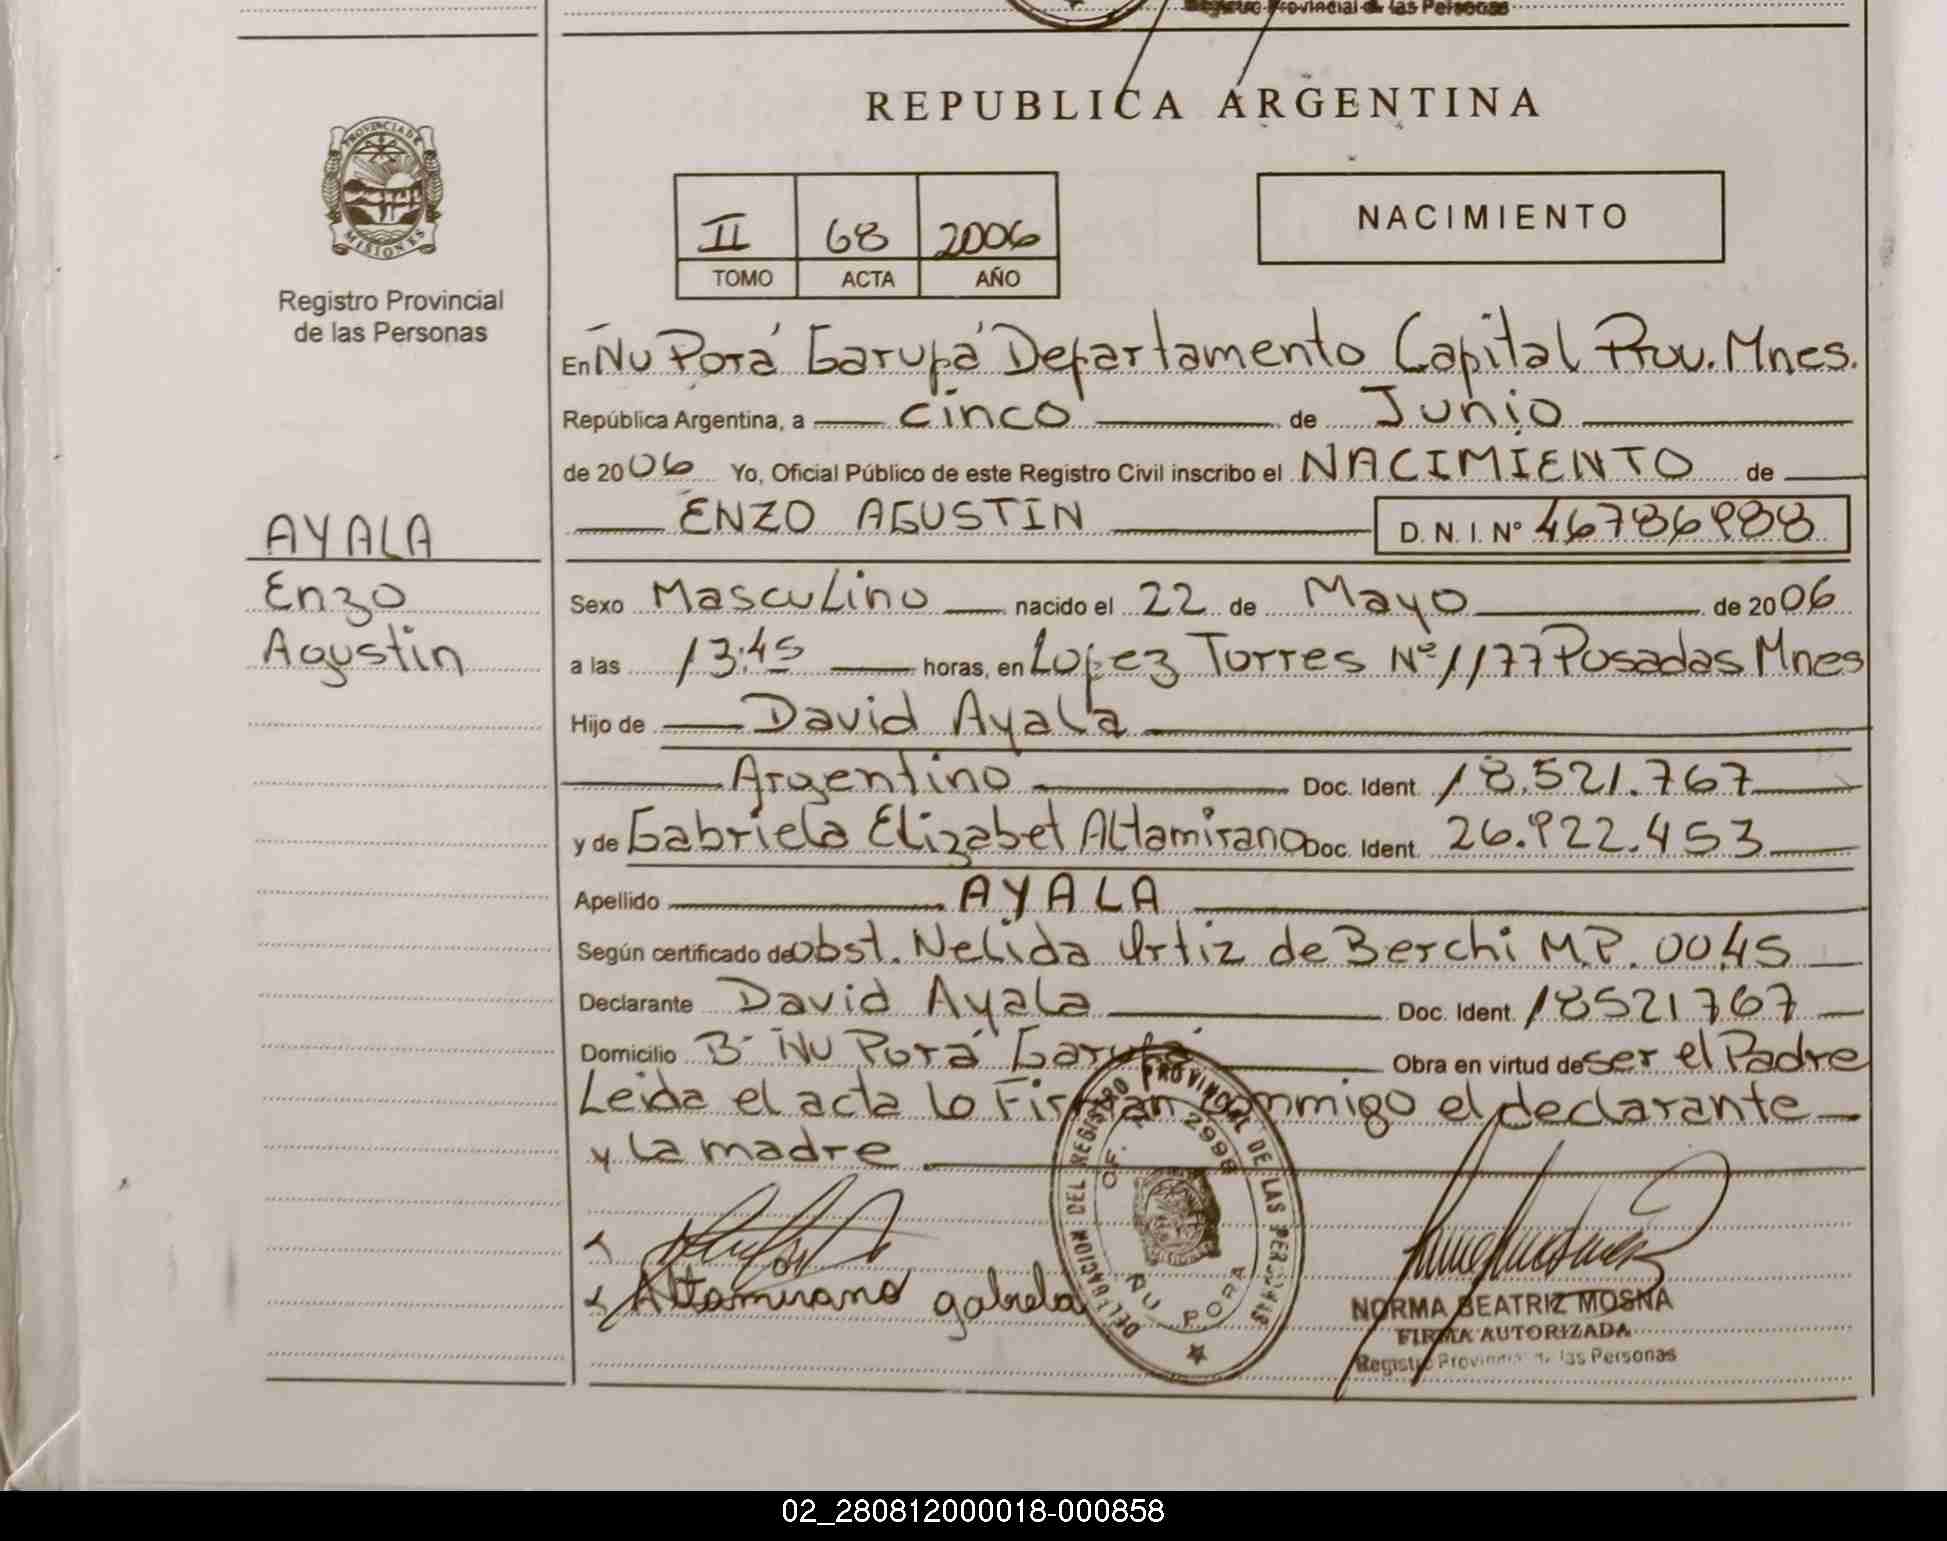 Registro Provincial de las Personas
REPUBLICA ARGENTINA
PROVINCIA DE
MISIONES
Registro Provincial
de las Personas
II 68 2006
TOMO ACTA AÑO
NACIMIENTO
En Ñu Porá Garupá Departamento Capital Prov. Mnes.
República Argentina, a cinco de Junio
de 2006 Yo, Oficial Público de este Registro Civil inscribo el NACIMIENTO de
ENZO AGUSTIN D. N. I. Nº 46786988
AYALA
Enzo
Agustin
Sexo Masculino nacido el 22 de Mayo de 2006
a las 13:45 horas, en Lopez Torres Nº 1177 Posadas Mnes
Hijo de David Ayala
Argentino Doc. Ident. 18.521.767
y de Gabriela Elizabet Altamirano Doc. Ident. 26.922.453
Apellido AYALA
Según certificado de Obst. Nelida Ortiz de Berchi M.P. 0045
Declarante David Ayala Doc. Ident. 18521767
Domicilio Bº Ñu Porá Garupá Obra en virtud de ser el Padre
Leida el acta lo Firman conmigo el declarante
y la madre
DELEGACION DEL REGISTRO PROVINCIAL DE LAS PERSONAS
OF. 2998
ÑU PORA
Altamirano gabriela
NORMA BEATRIZ MOSNA
FIRMA AUTORIZADA
Registro Provincial de las Personas
02_280812000018-000858